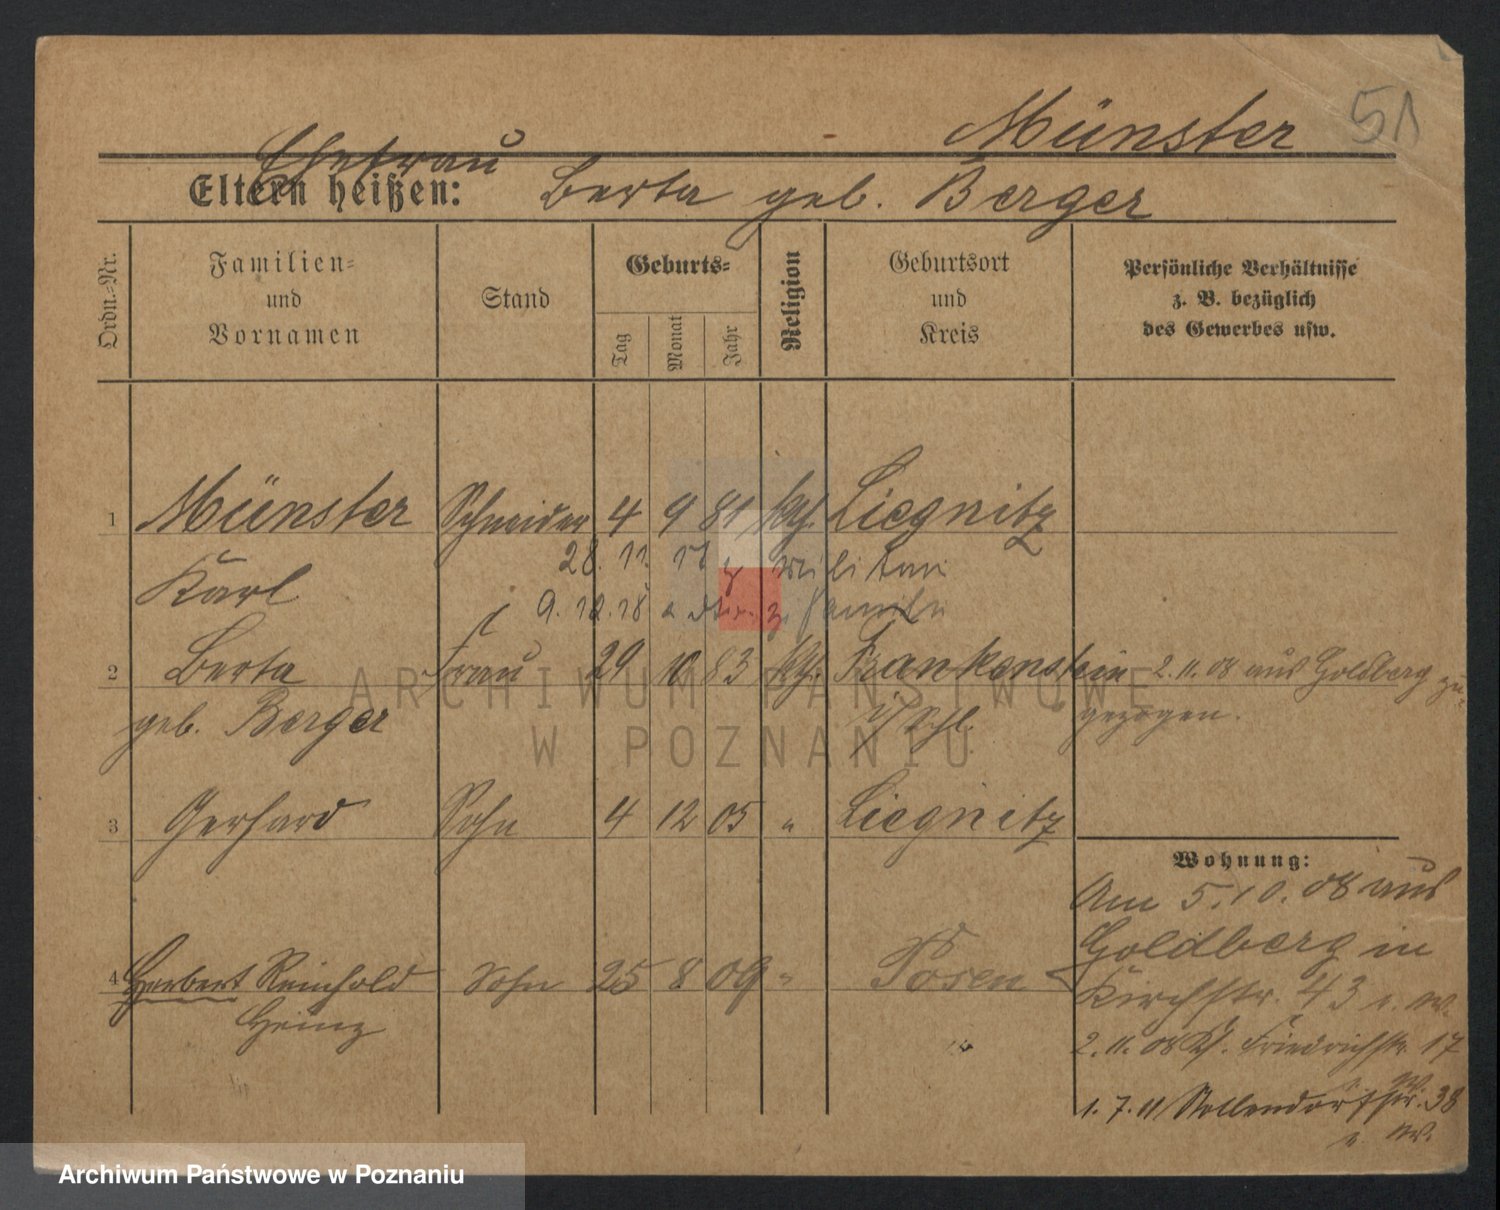 Münster 51
Ehefrau
Eltern heißen: Berta geb. Berger
Ordn.-Nr.
Familien-
und
Vornamen
Stand
Geburts-
Tag
Monat
Jahr
Religion
Geburtsort
und
Kreis
Persönliche Verhältnisse
z. B. bezüglich
des Gewerbes usw.
1 Münster Schneider 4 9 81 kth. Liegnitz
28. 11. z Militär
Karl
9. 12. 18 z. Familie
2 Berta Frau 29 10 83 kth. Frankenstein 2. 11. 08 aus Goldberg zu-
geb. Berger i/Schl. gezogen.
3 Gerhard Sohn 4 12 05 " Liegnitz
Wohnung:
Am 5. 10. 08 aus
Goldberg in
4 Herbert Reinhold Sohn 25 8 09 " Posen
Heinz
Kirchstr. 43
2. 11. 08 Friedrichstr. 17
1. 7. 11 38
ARCHIWUM PAŃSTWOWE
W POZNANIU
Archiwum Państwowe w Poznaniu